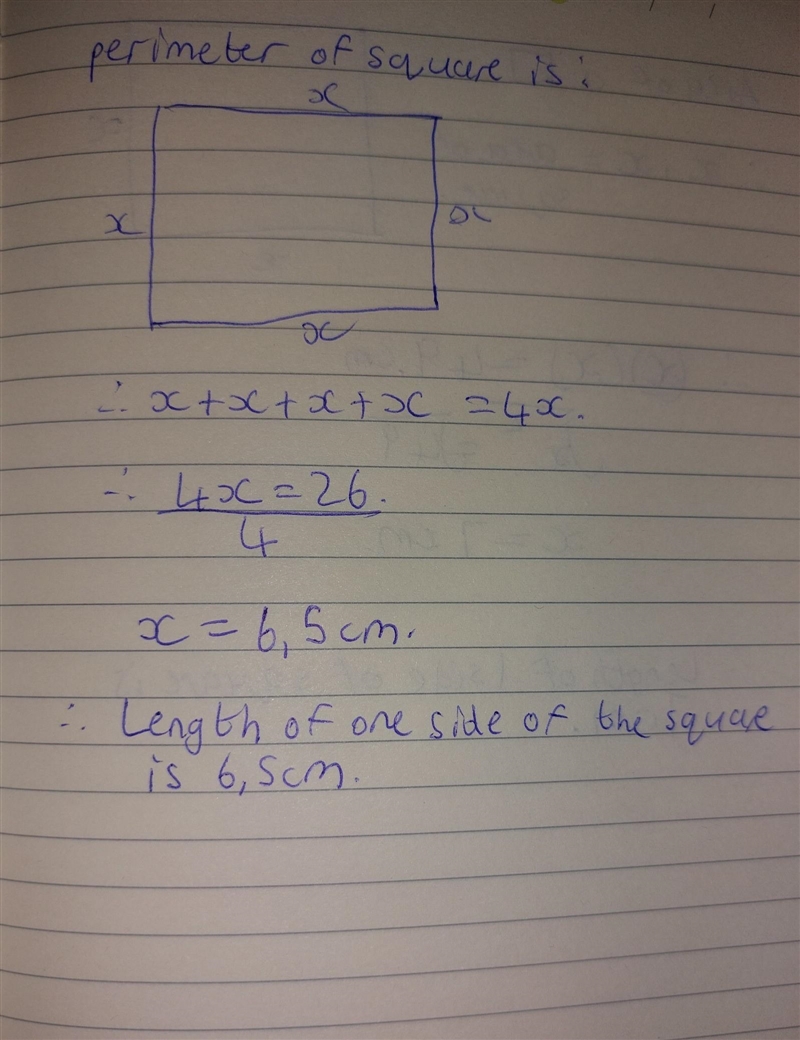 perimeter of square is:
x
x
x
x
∴ x+x+x+x =4x.
∴ 4x=26.
4
x = 6,5cm.
∴ Length of one side of the squae
is 6,5cm.